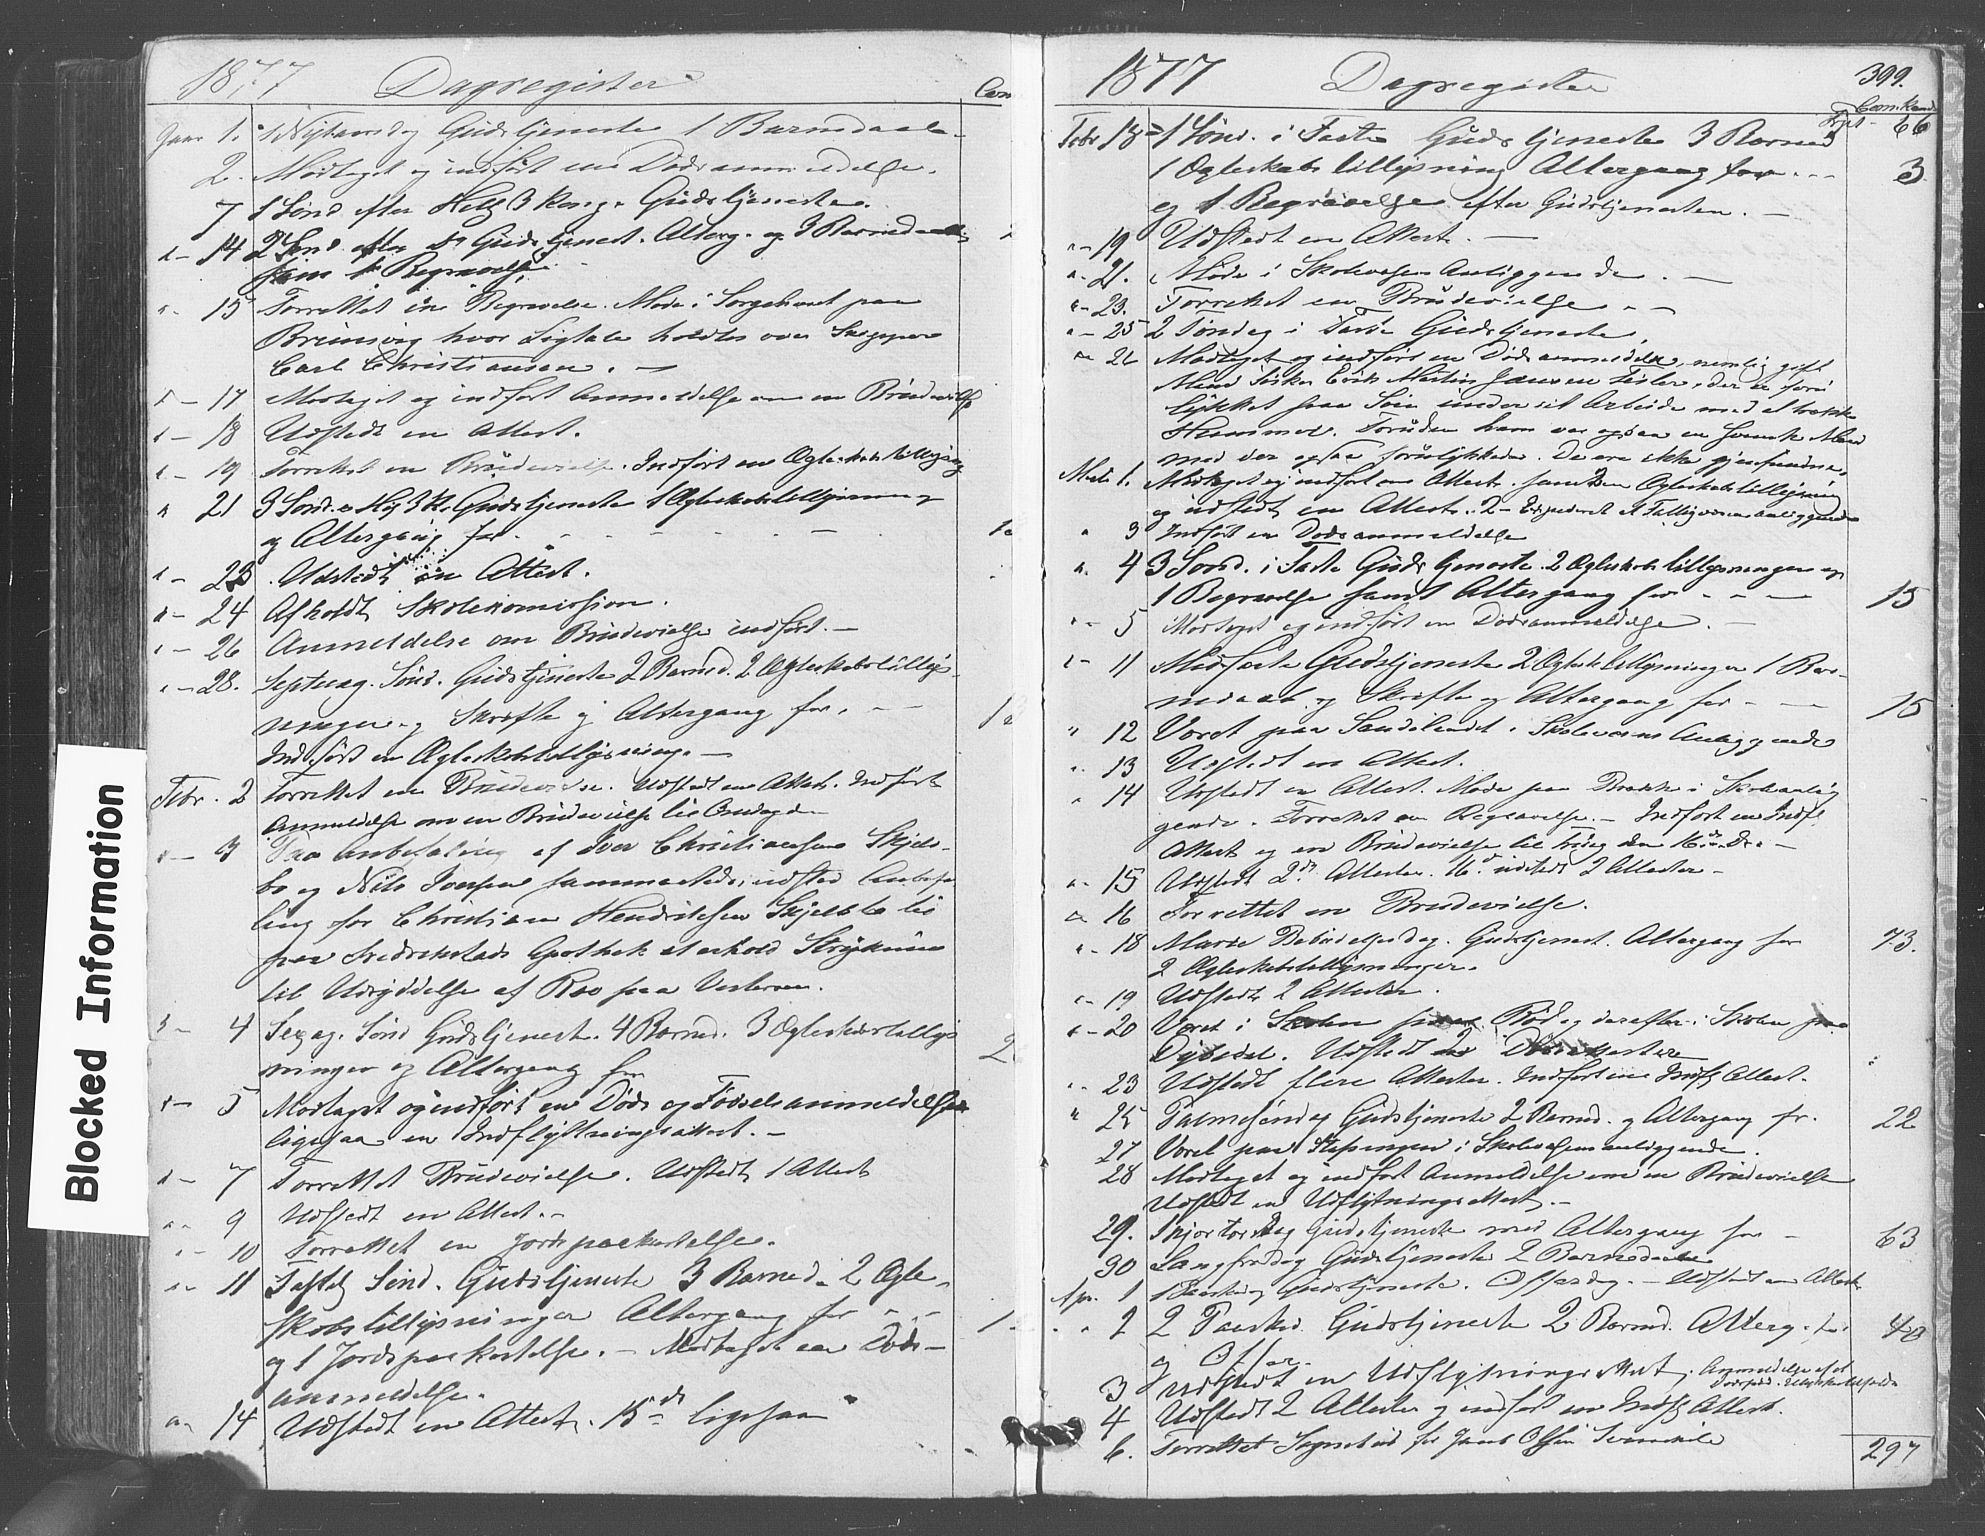 1877 Dagregister
Com
Janr 1. Nytaarsdag Gudstjeneste 1 Barnedaab
2. Modtaget og indført en Dødsanmeldelse.
7 1 Sønd. efter Hell. 3 Kong. Gudstjeneste.
14 2 Sønd. efter Do Gudstjenest. Alterg. og 3 Barnedaab
samt 1 Begravelse.
15 Forrettet en Begravelse. Møde i Sorgehuset paa
hvor Ligtale holdtes over Skipper
Carl Christiansen.
17 Modtaget og indført Anmeldelse om en Brudevielse
18 Udstedt en Attest.
19 Forrettet en Brudevielse. Indført en Ægteskabstillysning
21 3 Sønd. e. H. 3 K. Gudstjeneste 1 Ægteskabstillysning
og Altergang for
23. Udstedt en Attest.
24 Afholdt Skolekomission.
26 Anmeldelse om Brudevielse indført.
28. Septuag. Sønd. Gudstjeneste 2 Barned. 2 Ægteskabstillys-
ninger og Skrifte og Altergang for
Indført en Ægteskabstillysning.
Febr. 2 Forrettet en Brudevielse. Udstedt en Attest. Indført
Anmeldelse om en Brudevielse til Onsdag den
3 Paa Anbefaling af Iver Christiansen Skjels-
bo og Nils sammesteds, udsted Anbefa
ling for Christian Hendriksen Skjelsbo til
paa Fredrikstads Apothek at erhold Stryknin
til Udryddelse af Rov paa Vesterøen.
4 Sexag. Sønd Gudstjenest. 4 Barned. 3 Ægteskabstillys
ninger og Altergang for
5 Modtaget og indført en Døds og Fødselsanmeldelse
ligesaa en Indflyttningsattest.
7 Forrettet Brudevielse. Udstedt 1 Attest
9 Udstedt en Attest.
10 Forrettet en Jordspaakastelse.
11 Fastel. Sønd. Gudstjeneste 3 Barned. 2 Ægte-
skabstillysninger Altergang for
og 1 Jordspaakastelse. Modtaget en Døds-
anmeldelse.
14 Udstedt en Attest. 15de ligesaa
1877 Dagregister 399.
Comikand
Trpt 66
Febr 18 1 Sønd. i Faste Gudstjeneste 3 Barned
1 Ægteskabstillysning Altergang for 3
og 1 Begravelse efter Gudstjenesten.
19 Udstedt en Attest.
21. Møde i Skolevesens Anliggende.
23. Forrettet en Brudevielse
25 2 Søndag i Faste Gudstjeneste.
26 Modtaget og indført en Dødsanmeldelse, nemlig gift
Mand Fisker Erik Martin Jansen, der er foru
lykket paa Søen under sit Arbeide med at trække
Hummer. Foruden ham var ogsaa en svensk Mand
med der ogsaa forulykkede. De ere ikke gjenfundne.
Marts 1. Modtaget og indført en Attest. samt en Ægteskabstillysning
og udstedt en Attest. 2 Expederet et Fattigvesensanliggende
3 Indført en Dødsanmeldelse
4 3 Sønd. i Faste Gudstjeneste. 2 Ægteskabstillysninger og
1 Begravelse samt Altergang for 15
5 Modtaget og indført en Dødsanmeldelse.
11 Midfaste Gudstjeneste 2 Ægteskabstillysninger 1 Bar-
nedaab og Skrifte og Altergang for 15
12 Været paa i Skolevesens Anliggende
13 Udstedt en Attest.
14 Udstedt en Attest. Møde paa Brække i Skoleanlig
gende. Forrettet en Begravelse. Indført en Indfl.
Attest og en Brudevielse til Fredag den 16de Ds.
15 Udstedt 2de Attester. 16d udstedt 2 Attester
16 Forrettet en Brudevielse.
18 Mariæ Bebudelsesdag. Gudstjenest. Altergang for 73.
2 Ægteskabstillysninger.
19 Udstedt 2 Attester.
20 Været i Skolen paa Rød og derefter i Skolen paa
Dybedal. Udstedt
23 Udstedt flere Attester. Indført en Indfl. Attest.
25 Palmesøndag Gudstjeneste 2 Barned. og Altergang fr. 22
27 Været paa i Skolevesens anliggende.
28 Modtaget og indført Anmeldelse om en Brudevielse
Udstedt en Udflytningsattest.
29. Skjærtorsdag Gudstjeneste med Altergang for 63
30 Langfredag Gudstjeneste 2 Barnedaab
Apr. 1 1 Paaskedag Gudstjeneste. Offerdag. Udstedt en Attest
2 2 Paasked. Gudstjeneste 2 Barned. Alterg. for 40
og Offer.
3 Udstedt en Udflytningsattest. Anmeldelse af et
4 Udstedt 2 Attester og indført en Indfl. Attest.
6. Forrettet Sognebud for Jacob Olsen
297
Blocked Information